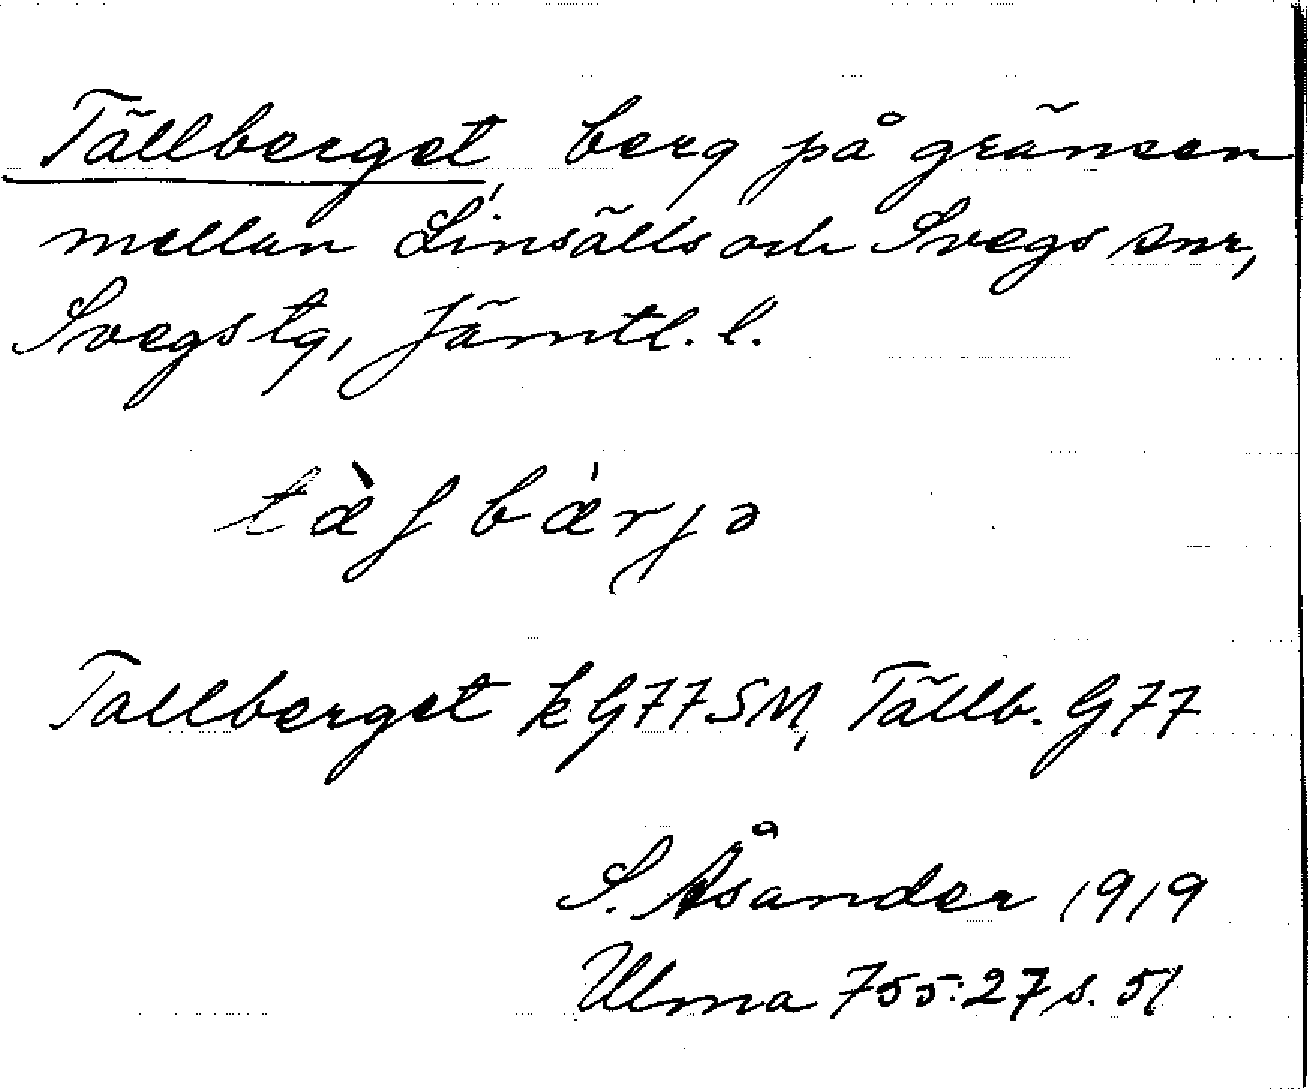 Tällberget, berg på gränsen
mellan Linsälls och Svegs snr,
Svegs tg, Jämtl. l.
tæ̀ʃbæ̀rjə
Tallberget k G77SM, Tällb. G77
S. Åsander 1919
Ulma 755:27 s. 51